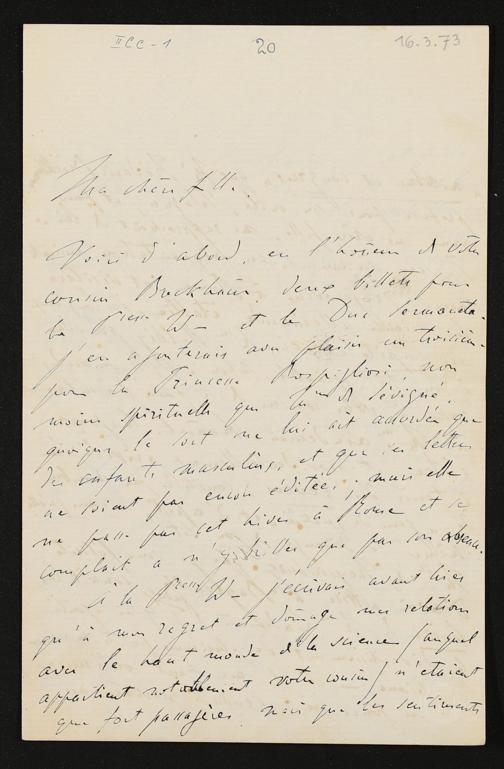 IICC-1
20
16.3.73
Ma chère fille.
Voici d'abord, en l'honneur de votre
cousin Breckham deux billets pour
la Pcesse W– et le Duc Sermoneta.
j'en ajouterais avec plaisir un troisième
pour la Princesse Rospigliosi non
moins spirituelle que Mme de Sévigné,
quoique le sort ne lui ait accordé que
des enfants masculins, et que ses lettres
ne soient pas encore éditées; mais elle
ne passe pas cet hiver à Rome et se
complait a n'y briller que par son absence.
à la Pcesse W– j'écrivais avant hier
qu'à mon regret et domage mes relations
avec le haut monde de la science (auquel
appartient notablement votre cousin) n'étaient
que fort passagères, mais que les sentiments